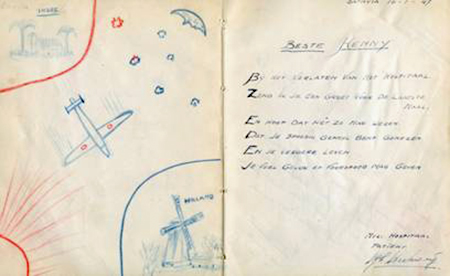 HOLLAND
BATAVIA
BESTE KENNY
BIJ HET VERLATEN VAN HET HOSPITAAL
ZEND IK JE EEN GROET VOOR DE LAATSTE
MAAL,
EN HOOP DAT HET ZO MAG WEZEN
DAT JE SPOEDIG GEHEEL BENT GENEZEN
EN JE VERDERE LEVEN
JE VEEL GELUK EN VOORSPOED MAG GEVEN
MIL. HOSPITAAL
PATIENT